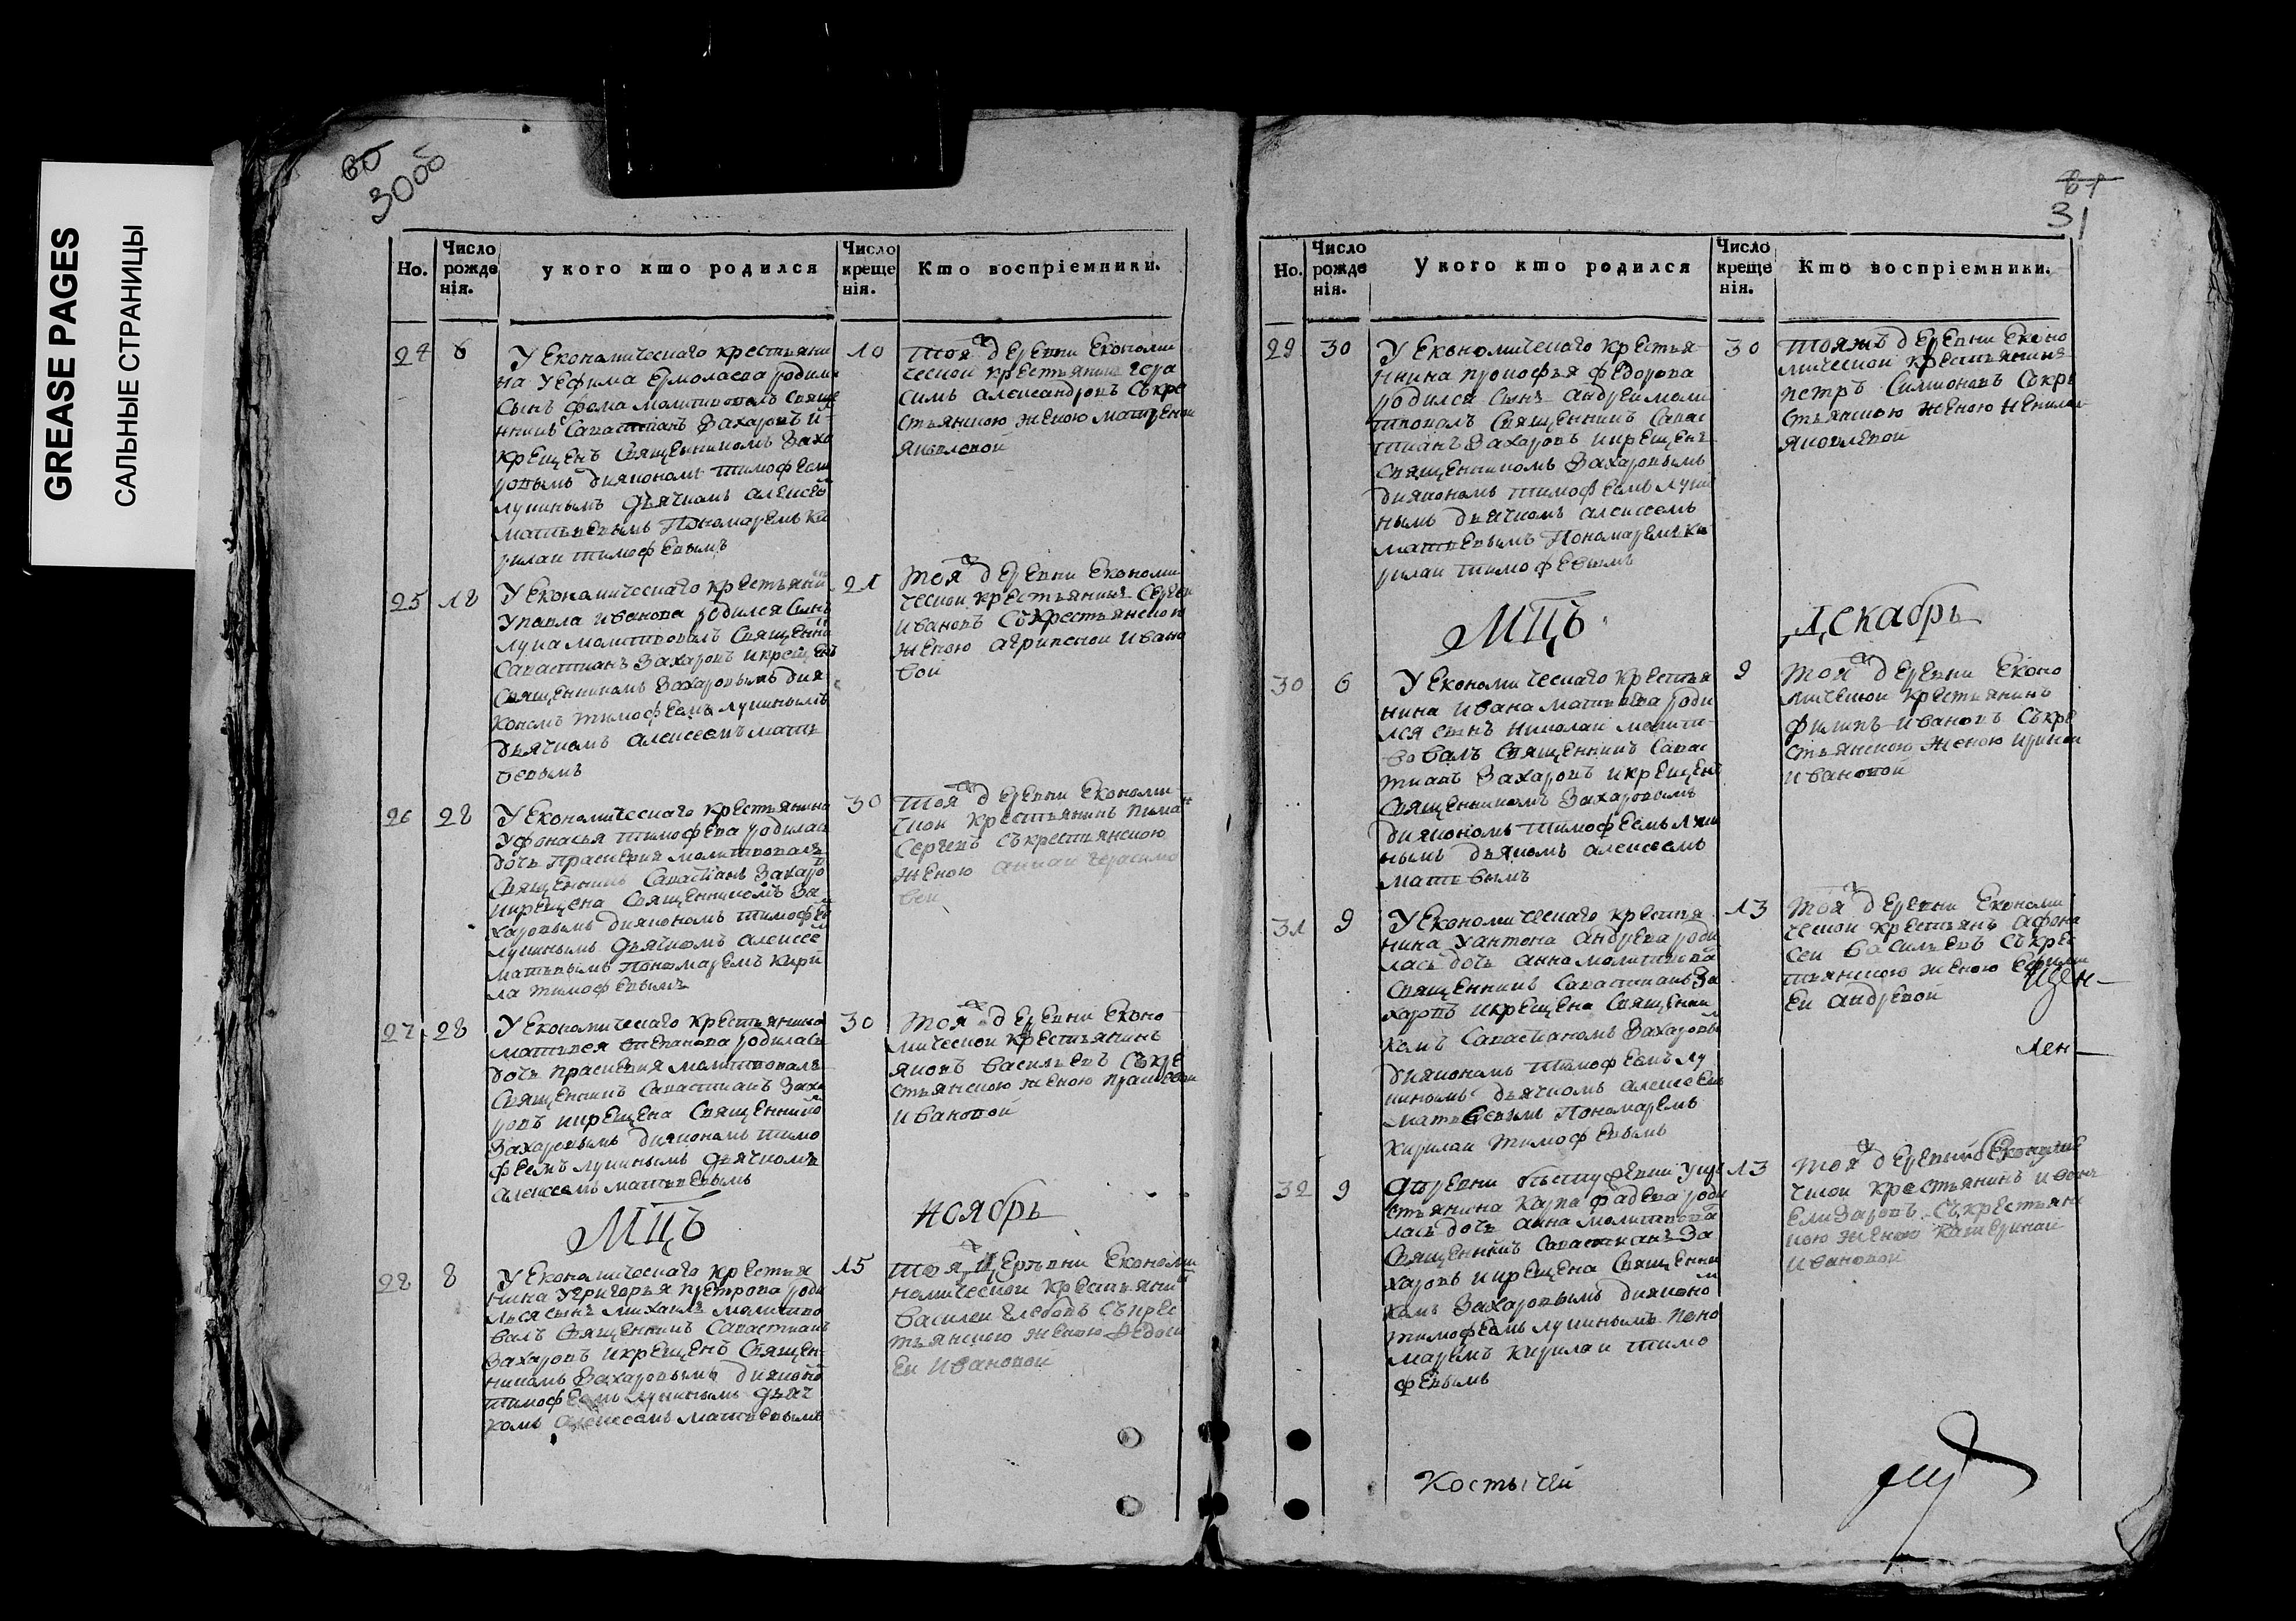 GREASE PAGES
САЛЬНЫЕ СТРАНИЦЫ
60
30 об
Но.
Число рожденія.
у кого кто родился
Число крещенія.
Кто воспріемники.
24 6
У Економическаго крестьяни
на Уефима Ермолаева родился
сынъ фома молитвовалъ свяще
нникъ Савастианъ Захаровъ и
крещенъ священникомъ Заха
ровымъ дияконом тимофеем
лукинымъ дьячкомъ алексеем
матвеевымъ Пономаремъ Ки
рилаи тимофеевымъ
10
тоя ж деревни Економи
ческои крестьянинъ гера
симъ александровъ съ кре
стьянскою женою матреною
яковлевой
25 18
У Економическаго крестьянина
У павла иванова родился сынъ
лука молитвовалъ священникъ
Савастианъ Захаровъ и крещенъ
священникомъ Захаровымъ дия
кономъ тимофеемъ лукинымъ
дьячкомъ алексеемъ матв
еевымъ
21
тоя ж деревни Економи
ческои крестьянинъ Сергеи
ивановъ съ крестьянскою
женою агрипеной ивано
вой
26 28
У Економическаго крестьянина
Уфонасья тимофева родилась
дочь Прасковия молитвовалъ
священникъ Савастианъ Захаро
и крещена священникомъ За
харовымъ дияконом тимофеем
лукинымъ дьячкомъ алексеем
матвевымъ Пономаремъ Кири
ла тимофевымъ
30
тоя ж деревни Економи
чкои крестьянинъ Пиман
Сергевъ съ крестьянскою
женою аннаи герасимо
веи
27 28
У Економическаго крестьянина
матвея степанова родилась
дочь прасковия молитвовалъ
священникъ Савастианъ Заха
ровъ и крещена священником
Захаровымъ дияконом тимо
феемъ лукинымъ дьячкомъ
алексеемъ матвеевымъ
30
тоя ж деревни Еконо
мическои крестьянинъ
яковъ васильевъ съ кре
стьянскою женою прасковеи
ивановой
МЦЪ Ноябрь
28 8
У Економическаго крестья
нина Угригорья петрова роди
лься сынъ михаилъ молитво
валъ священникъ Савастианъ
Захаровъ и крещенъ священ
никомъ Захаровымъ дияконо
тимофеемъ лукинымъ дьяч
комъ алексеемъ матвеевымъ
15
тоя ж деревни Економи
номическои крестьянин
василеи глебовъ съ крес
тьянскою женою федось
еи ивановой
61
31
Но.
Число рожденія.
У кого кто родился
Число крещенія.
Кто воспріемники.
29 30
У Економическаго крестья
нина прокофья федорова
родился сынъ андреи моли
твовалъ священникъ Савас
тианъ Захаровъ и крещенъ
священникомъ Захаровымъ
дияконом тимофеемъ луки
нымъ дьячкомъ алексеемъ
матвеевымъ Пономаремъ ки
рилаи тимофеевымъ
30
тояжъ деревни Еконо
мическои крестьянинъ
петръ Симионовъ съ кре
стьянскою женою
яковлевой
МЦЪ Декабрь
30 6
У Економическаго крестья
нина ивана матвеева роди
лся сынъ николаи молит
вовалъ священникъ Савас
тианъ Захаровъ и крещенъ
священникомъ Захаровымъ
дияконом тимофеемъ луки
нымъ дьякомъ алексеемъ
матвевымъ
9
той ж деревни Еконо
мическои крестьянинъ
филипъ ивановъ съ кре
стьянскою женою иринои
ивановой
31 9
У Економическаго крестья
нина Уантона андрева роди
лась дочь анна молитвова
священникъ Савастианъ За
харовъ и крещена священни
комъ Савастианомъ Захаровы
дияконом тимофеемъ лу
кинымъ дьячкомъ алексеем
матвеевым Пономаремъ
Кирилаи тимофевымъ
13
тоя ж деревни Економи
ческои крестьянъ афона
сеи васильевъ съ крес
тьянскою женою
еи андревой
щен
лен
32 9
деревни У
стьянина Карпа фадева роди
лась дочь анна молитвова
священникъ Савастианъ За
харовъ и крещена священни
комъ Захаровымъ дияконо
тимофеемъ лукинымъ поно
маремъ Кирилаи тимо
февымъ
13
тоя ж деревни Економи
чкои крестьянинъ иванъ
Елизаровъ съ крестьян
кою женою катеринаи
ивановой
Костычи